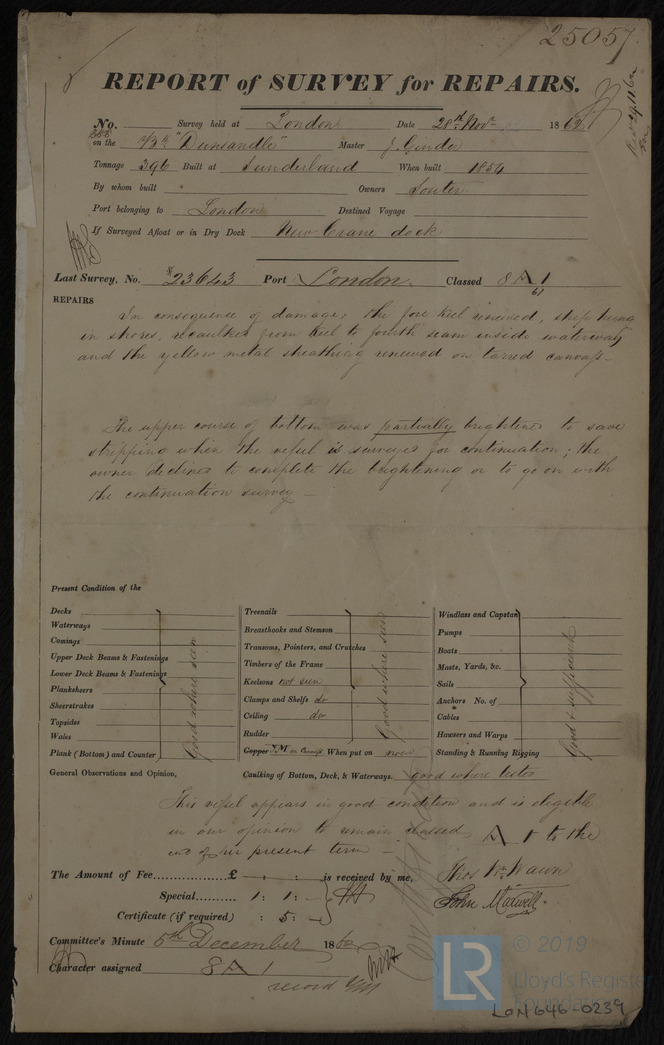 25057
REPORT of SURVEY for REPAIRS.
No. Survey held at London Date 28th Novr 1862
on the "Dunsandle" Master J. Gowdie
Tonnages 396 Built at Sunderland When built 1854
By whom built " Owners Souter
Port belonging to London Destined Voyage
If Surveyed Afloat or in Dry Dock New Crane dock
Last Survey, No. 23643 Port London Classed 8 A 1
61
REPAIRS
In consequence of damage; the fore keel renewed, ship hung
in shores, recaulked from keel to fourth seam inside waterways
and the yellow metal sheathing renewed on tarred canvass.
The upper course of bottom was partially brightened to save
stripping when the vessel is surveyed for continuation; the
owner declines to complete the brightening or to go on with
the continuation survey —
Present Condition of the
Decks
Waterways
Comings
Upper Deck Beams & Fastenings
Lower Deck Beams & Fastenings
Planksheers
Sheerstrakes
Topsides
Wales
Plank (Bottom) and Counter
Good where seen
Treenails
Breasthooks and Stemson
Transoms, Pointers, and Crutches
Timbers of the Frame
Keelsons not seen
Clamps and Shelfs do
Ceiling do
Rudder
Copper YM on Canvass When put on now
good where seen
Windlass and Capstan
Pumps
Boats
Masts, Yards, &c.
Sails
Anchors No. of
Cables
Hawsers and Warps
Standing & Running Rigging
Good & sufficient
General Observations and Opinion, Caulking of Bottom, Deck, & Waterways. good where tested
This vessel appears in good condition and is eligible
in our opinion to remain classed A 1 to the
end of her present term —
The Amount of Fee............£ is received by me,
Special............ 1 : 1 : -
Certificate (if required) : 5 : -
Thos Wm Wawn
John Maxwell.
Committee's Minute 5th December 1862
Character assigned 8 A 1
record YM
LR
© 2019
Lloyd's Register
Foundation
LON646-0239